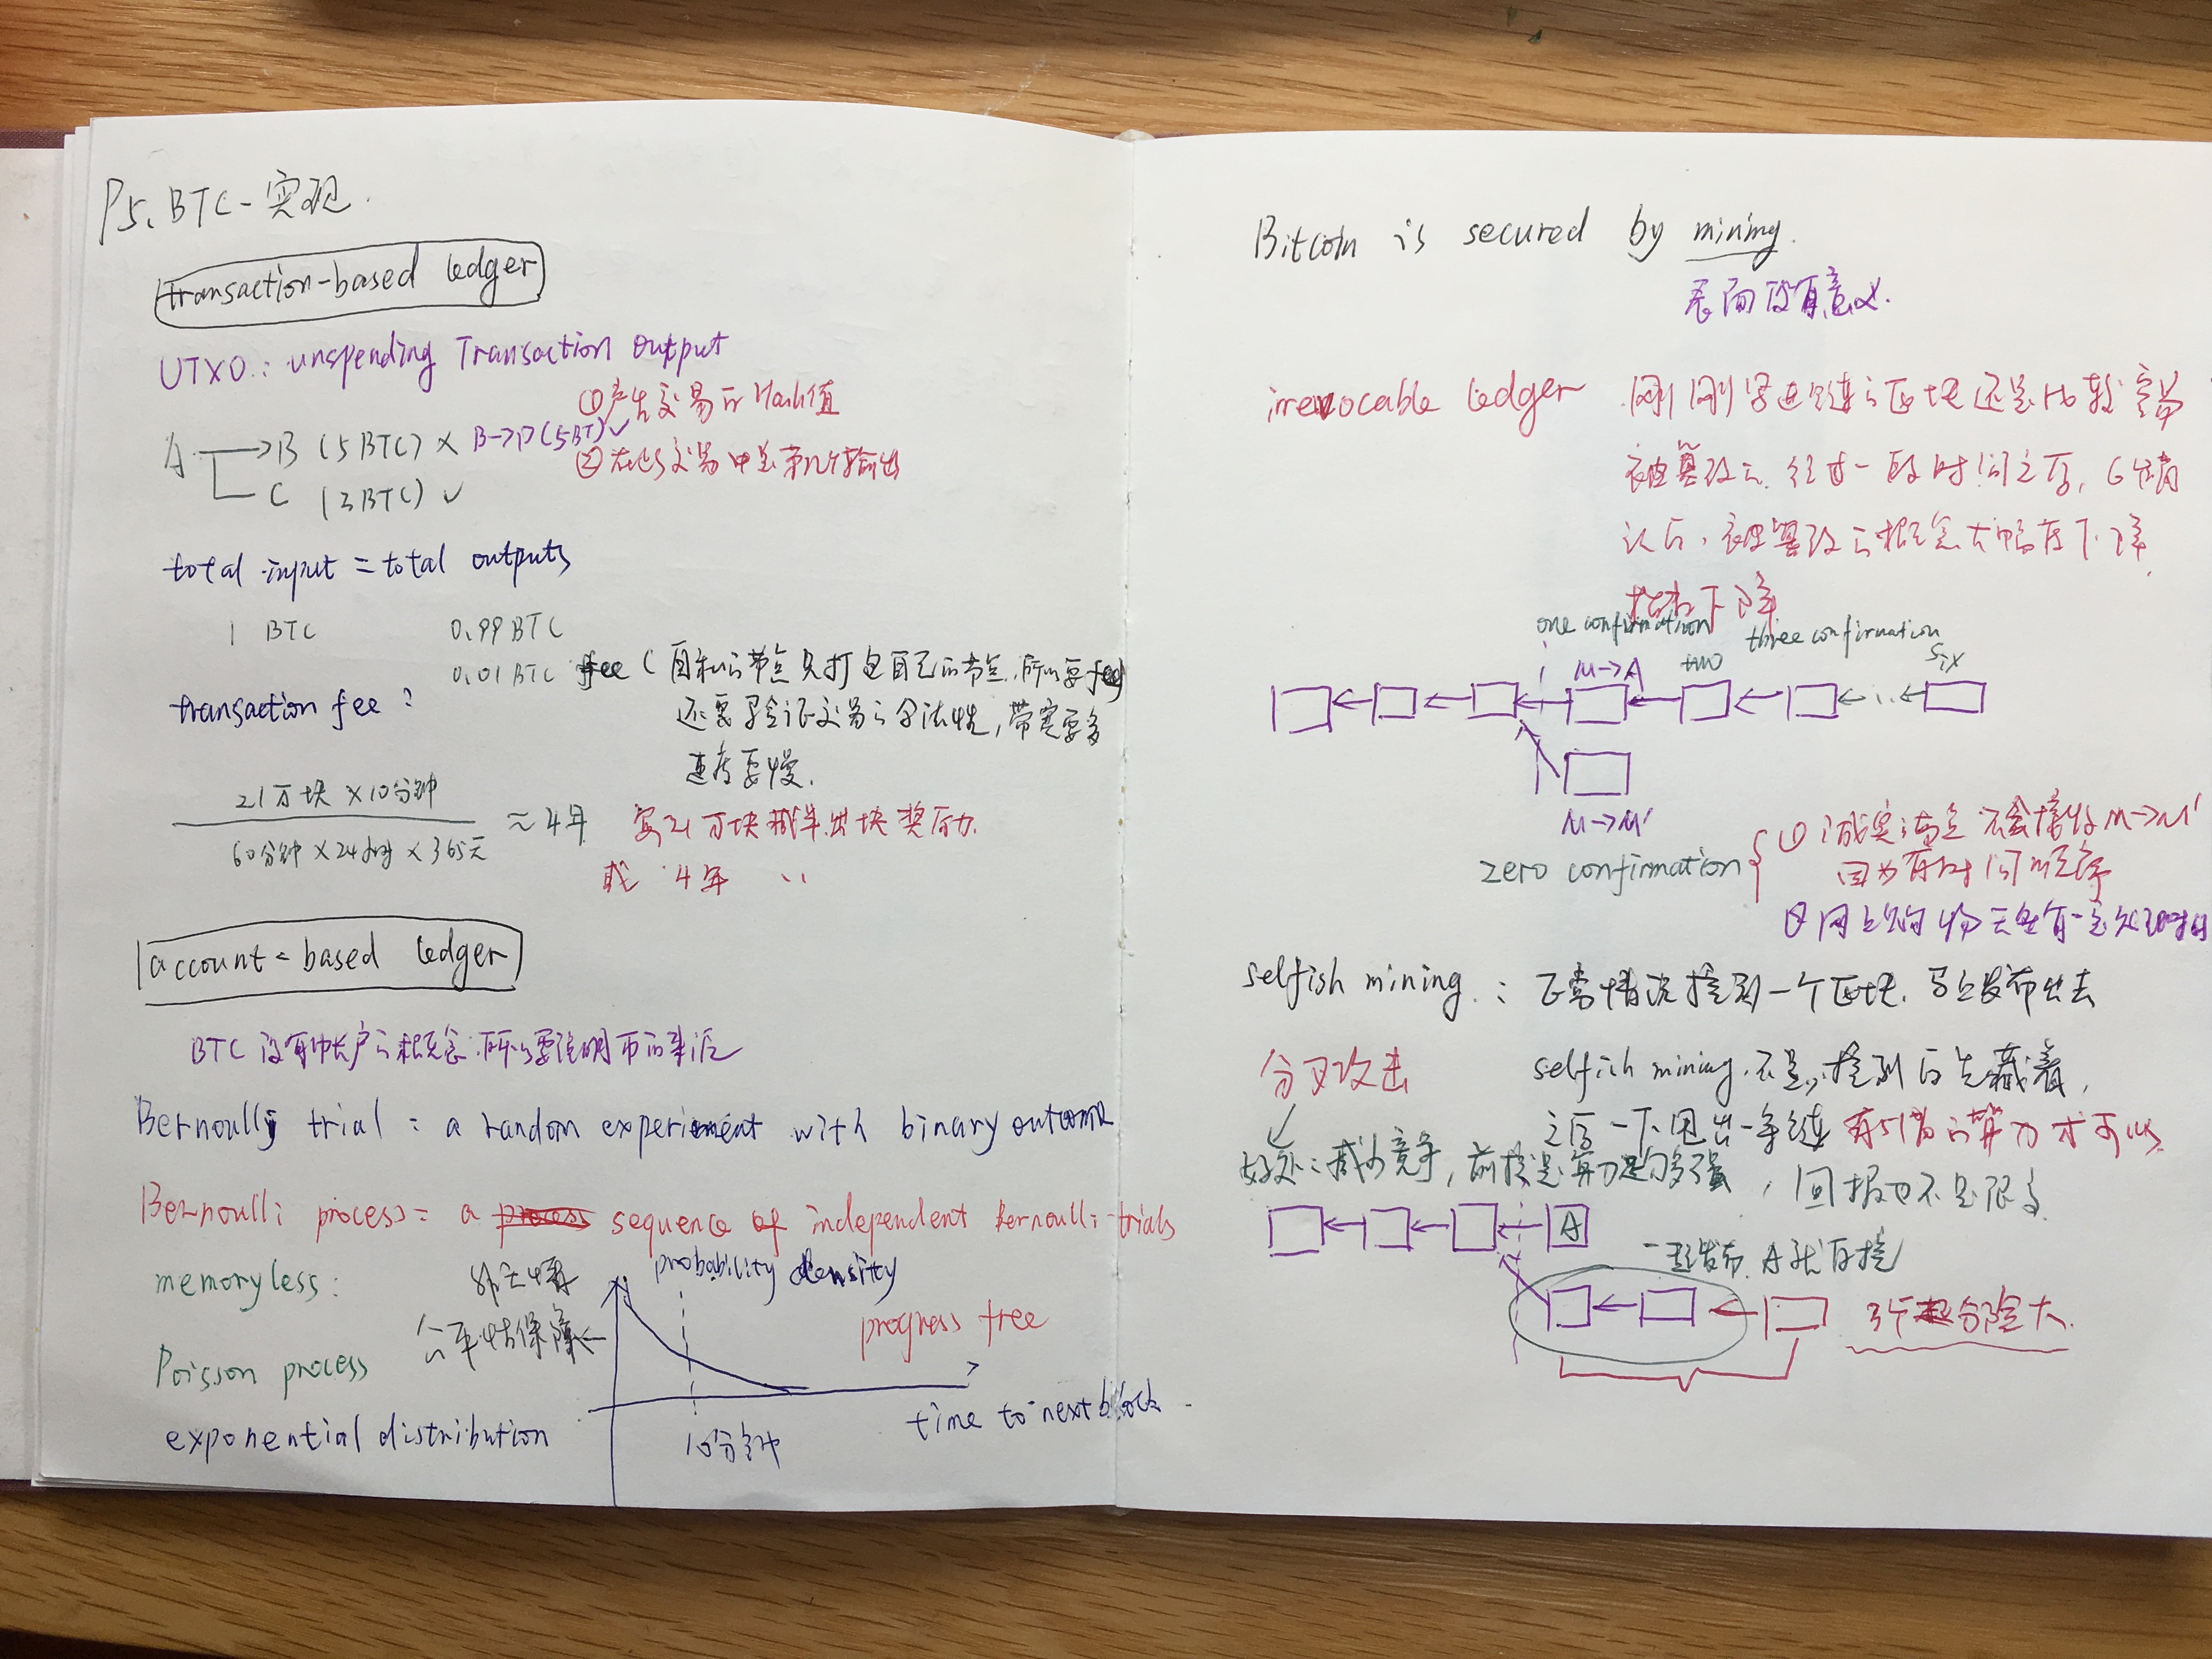 P5、BTC-实现.
transaction-based ledger
UTXO: unspending Transaction output
①产生交易的Hash值
A → B (5BTC) × B→D(5BT)✓
②在这个交易中是第几个输出
C (3BTC) ✓
total input = total outputs
1 BTC 0.99BTC
0.01BTC fee (自私的节点只打包自己的节点,所以要fee)
transaction fee: 还要验证交易的合法性,带宽要多
速度要慢.
21万块×10分钟
60分钟×24小时×365天 ≈4年 每21万块减半出块奖励
或 4年 ''
account-based ledger
BTC 没有帐户的概念,所以要说明币的来源
Bernoulli trial: a random experiment with binary outcome
Bernoulli process: a process sequence of independent Bernoulli trials
memoryless: 无记忆 probability density
公平性保障← progress free
Poisson process
exponential distribution 10分钟 time to next block.
Bitcoin is secured by mining.
表面没有意义.
irrevocable ledger 刚刚写进链的区块还是比较容易
被篡改的.经过一段时间之后,6个确
认后,被篡改的概率大幅度下降.
指数下降
one confirmation three confirmation
M→A two six
M→M'
zero confirmation ①诚实节点不会接收M→M'
因为有时间顺序
②网上购物天生有一定处理时间
selfish mining: 正常情况挖到一个区块,马上发布出去
分叉攻击 selfish mining 不是,挖到后先藏着,
之后一下甩出一条链 有51%的算力才可以
好处:减少竞争,前提是算力足够强,回报也不是很多
A
一起发布,A就白挖
3个 风险大.